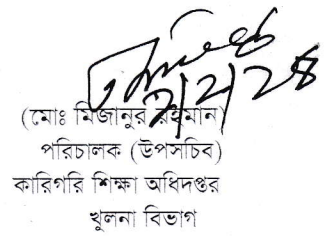 ২/২/২৪
(মোঃ মিজানুর রহমান)
পরিচালক (উপসচিব)
কারিগরি শিক্ষা অধিদপ্তর
খুলনা বিভাগ